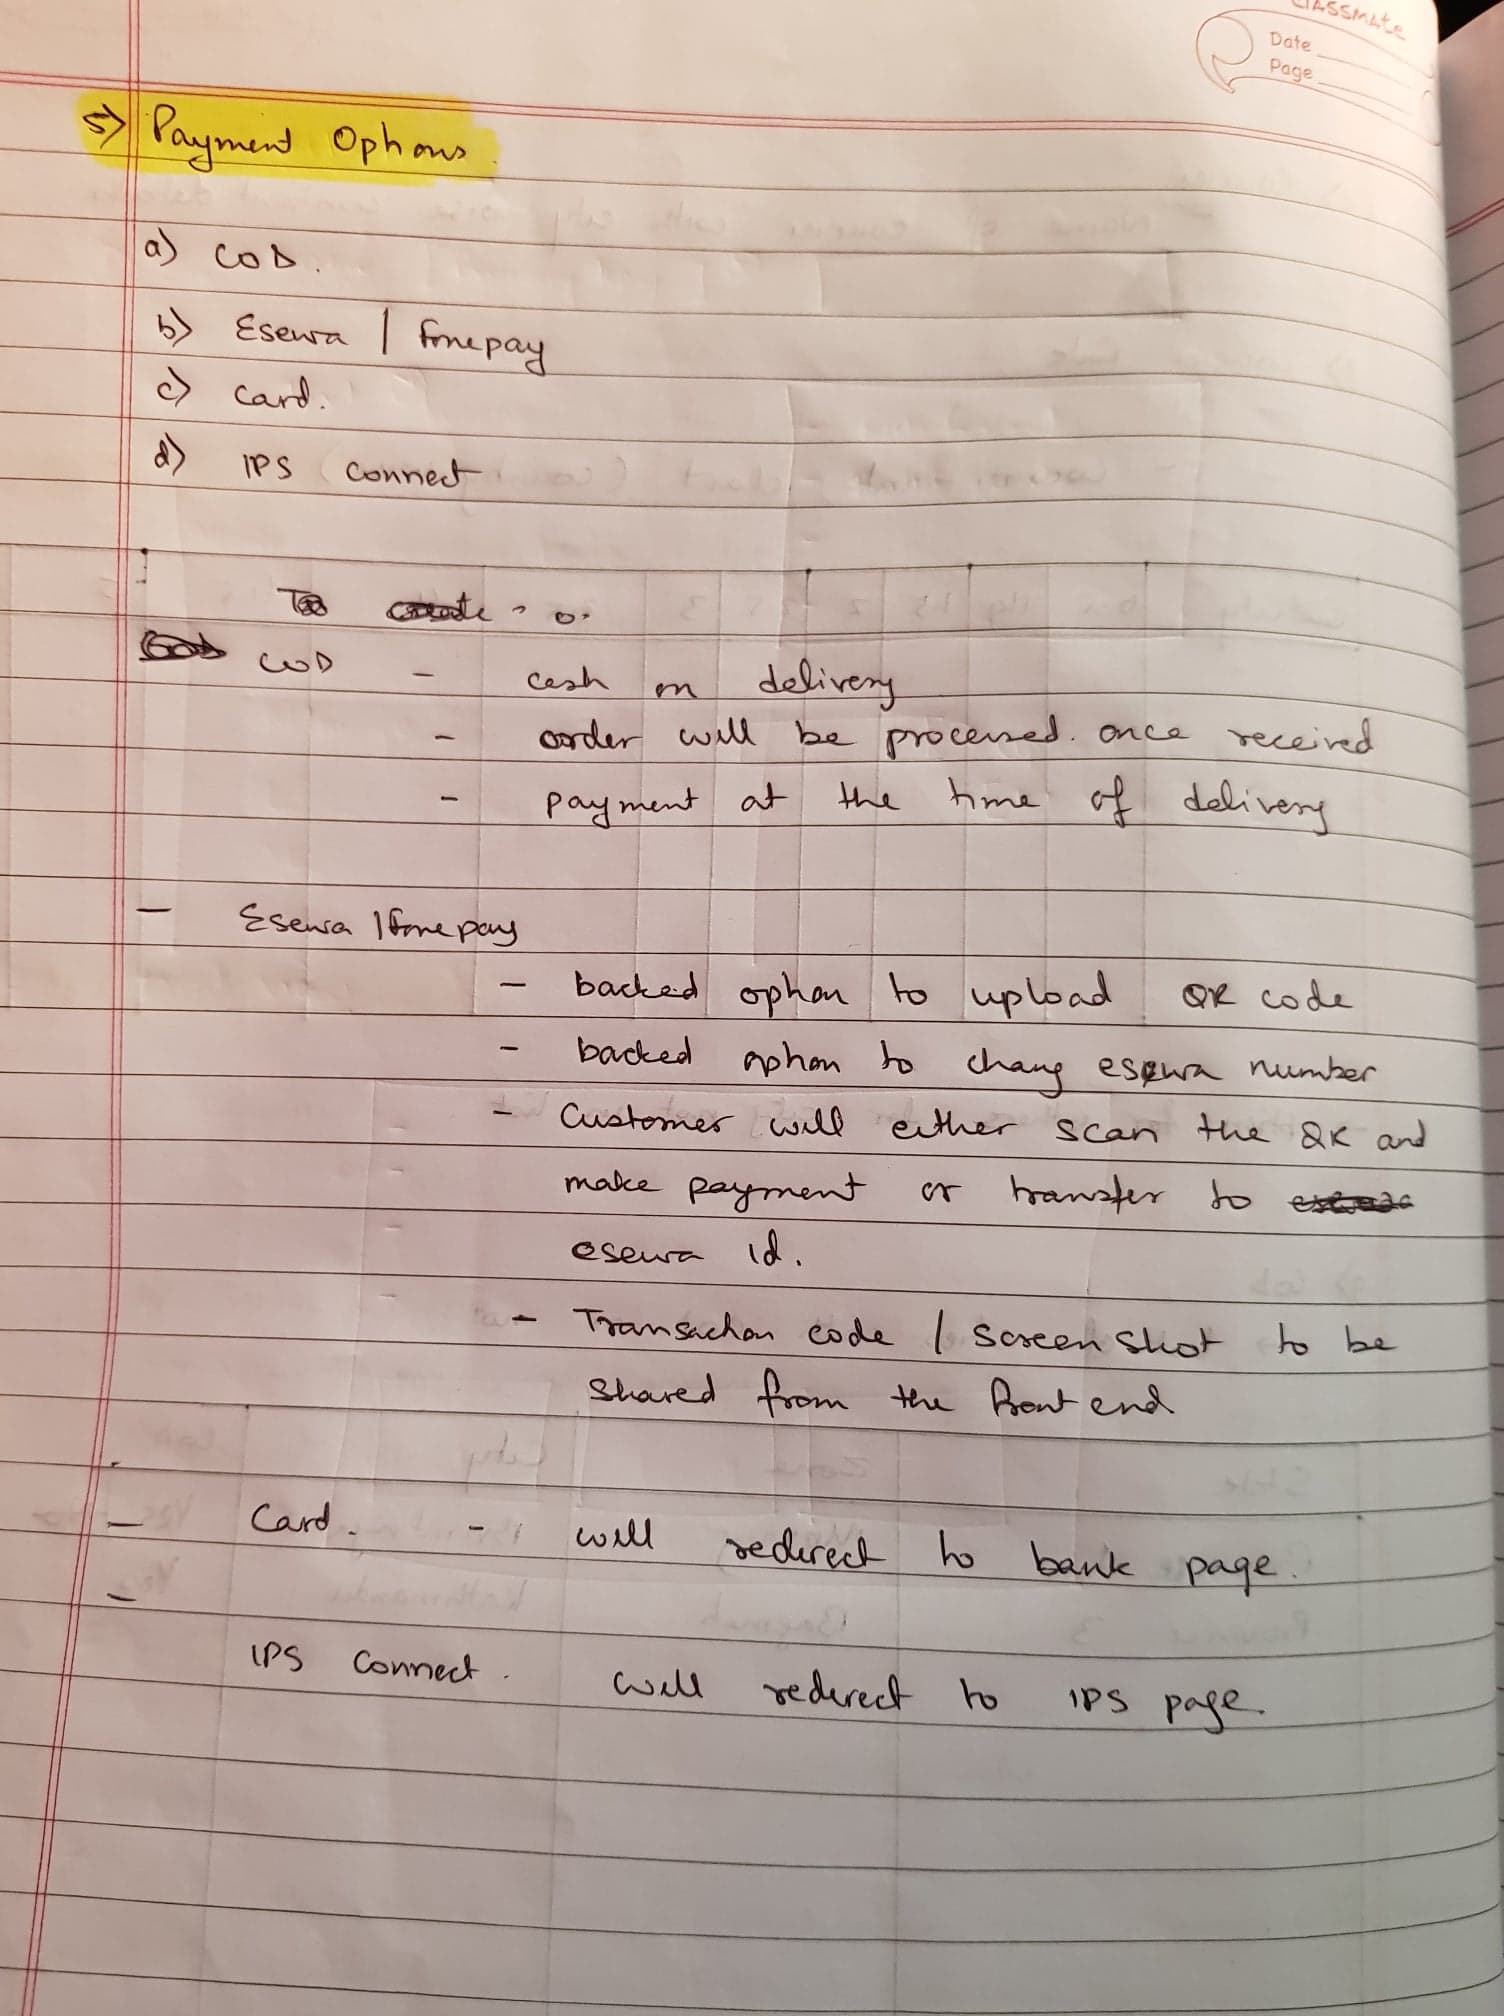 classmate
Date
Page
5) Payment Options
a) COD.
b) Esewa | fonepay
c) Card.
d) IPS Connect
To create
COD - cash on delivery
- order will be processed. once received
- payment at the time of delivery
- Esewa | fonepay
- backed option to upload QR code
- backed option to chang esewa number
- Customer will either scan the QR and
make payment or transfer to
esewa id.
- Transaction code / Screen Shot to be
Shared from the front end
- Card. - will redirect to bank page.
-
IPS Connect. will redirect to IPS page.